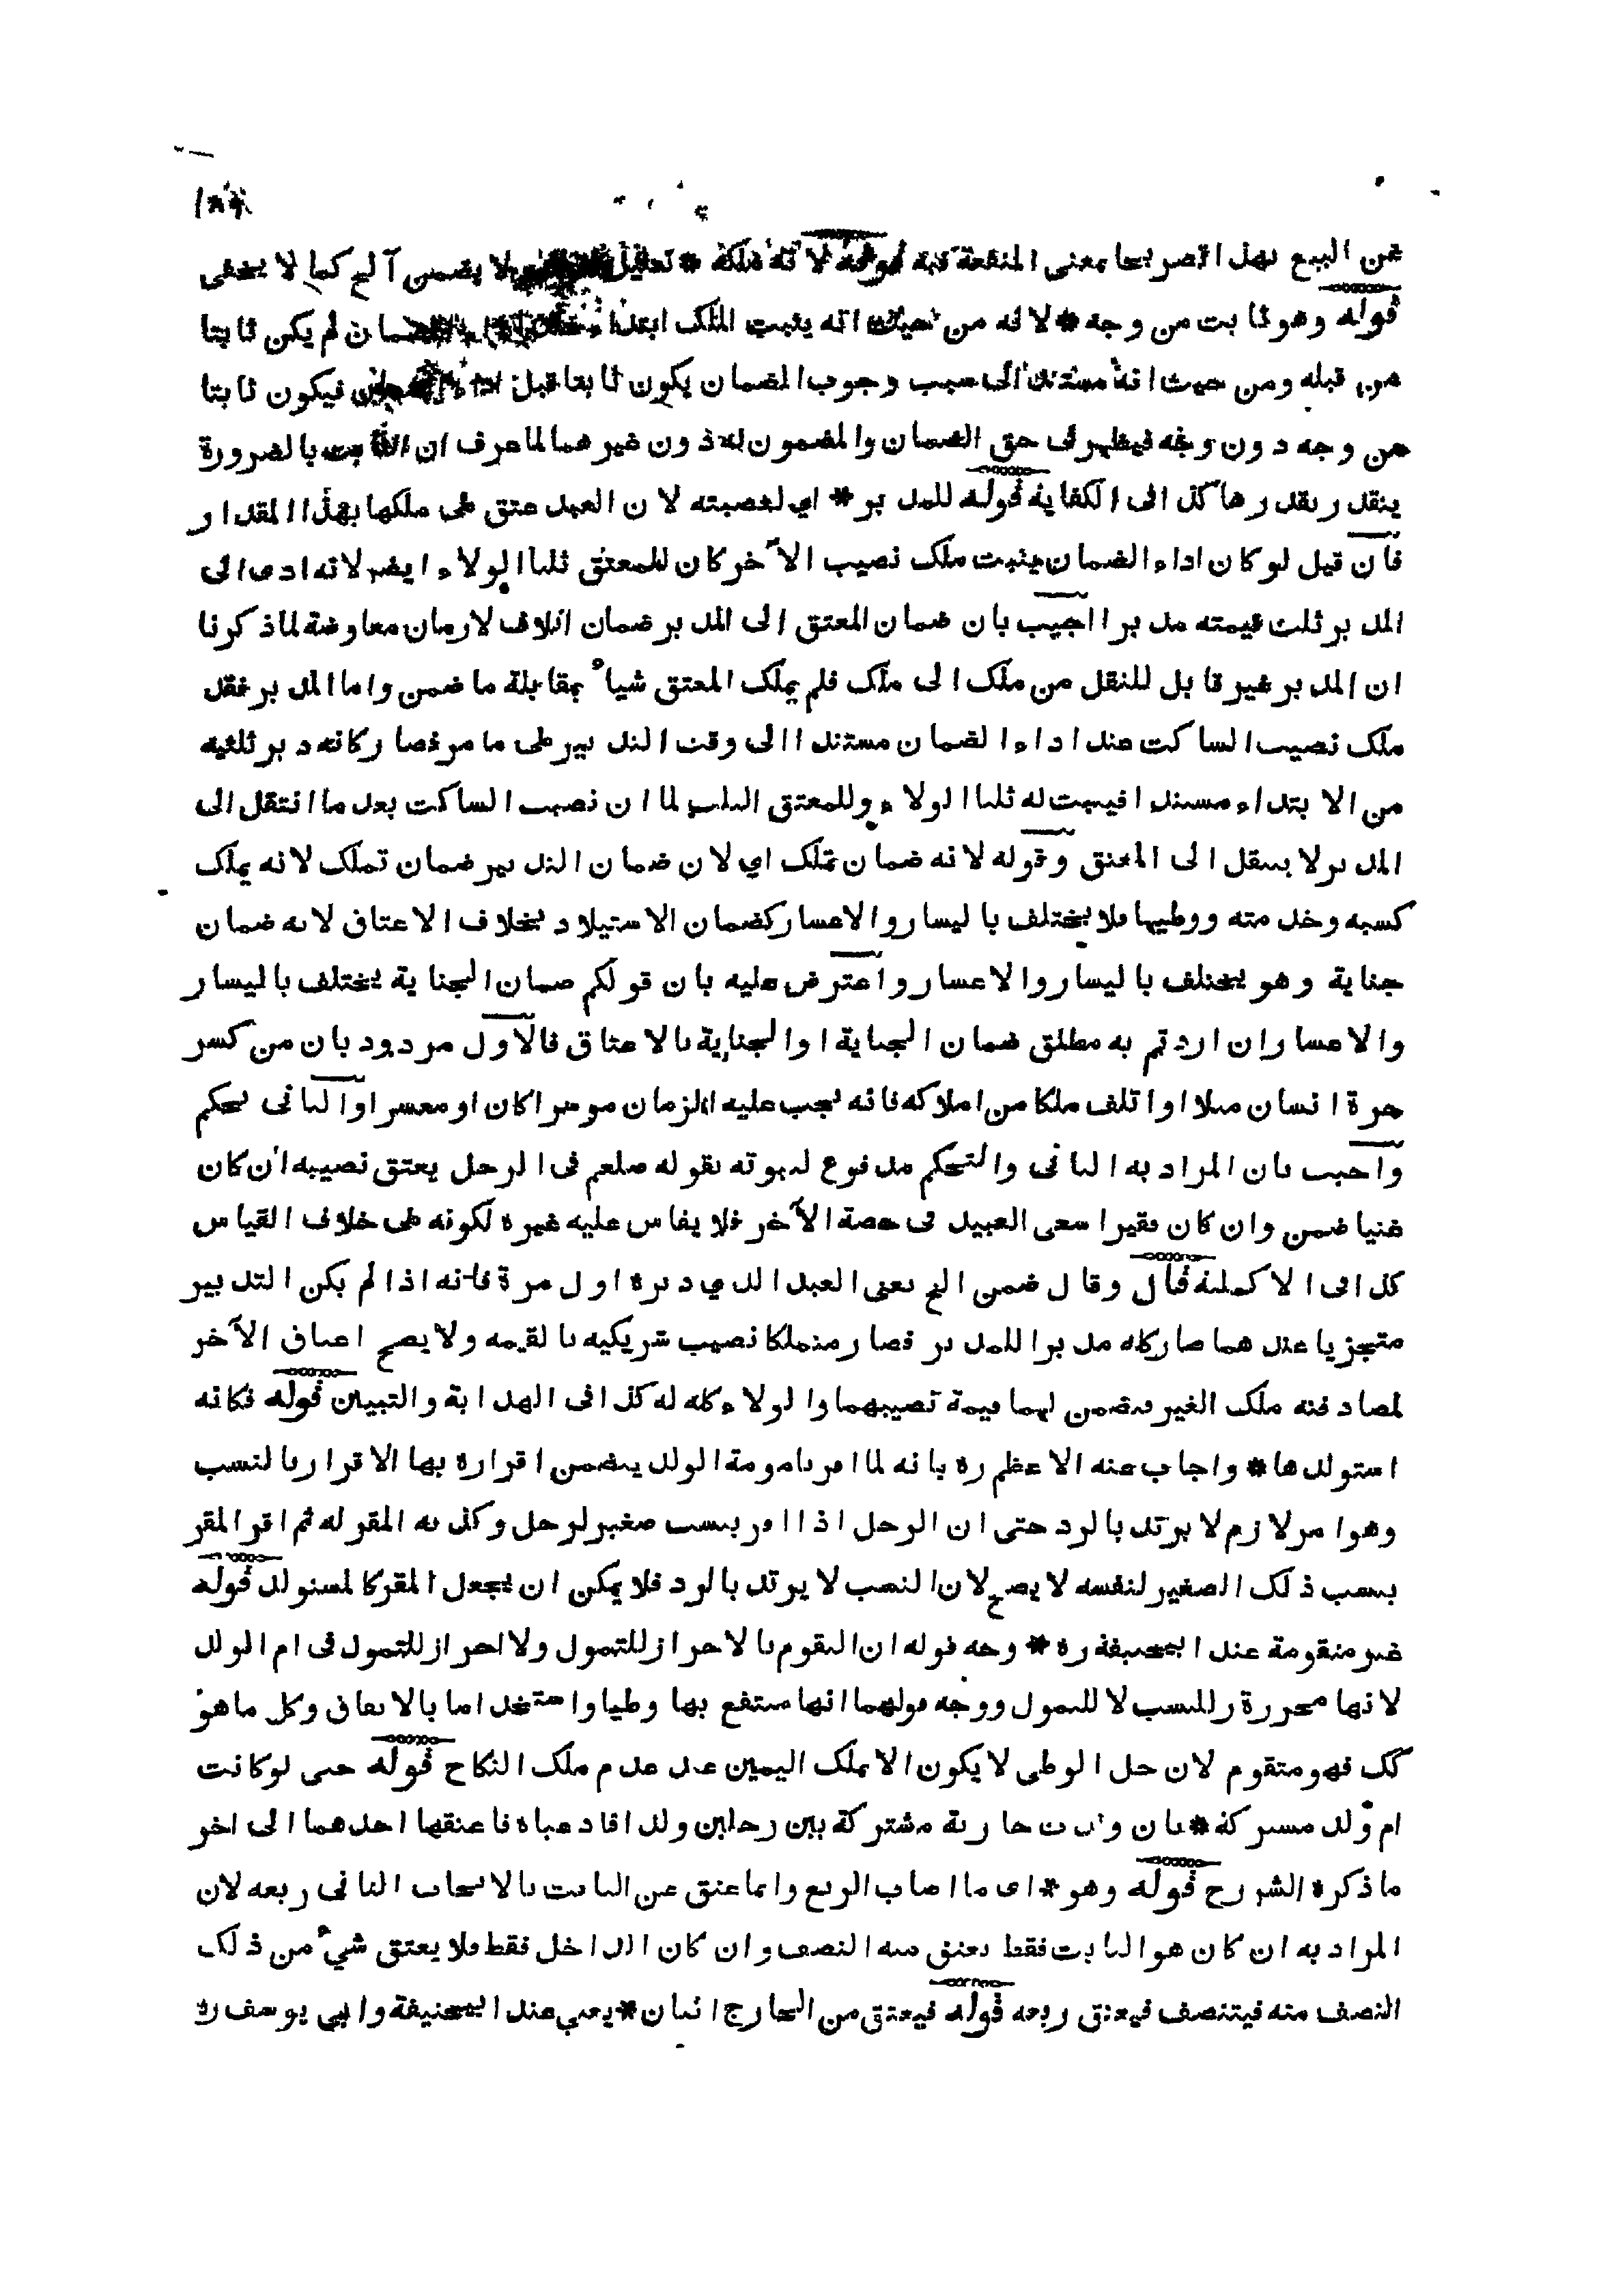 عن البيع بهذا تصريحا بمعنى المنفعة قوله لانه ملكه * تعليل لا يضمن آلخ كما لا يخفى
قوله وهو ثابت من وجه * لانه من حيث انه يثبت الملك ابتداء الضمان لم يكن ثابتا
من قبله ومن حيث انه مستند الى سبب وجوب الضمان يكون ثابتا قبل اداء فيكون ثابتا
من وجه دون وجه فيظهر في حق الضمان والمضمون له دون غيرهما لما عرف ان الثابت بالضرورة
يتقدر بقدرها كذا في الكفاية قوله للمدبر * اي لغصبته لان العبد عتق على ملكها بهذا المقدار
فان قيل لو كان اداء الضمان يثبت ملك نصيب الآخر كان للمعتق ثلثا الولاء ايضا لانه ادى الى
المدبر ثلث قيمته مدبرا اجيب بان ضمان المعتق الى المدبر ضمان اتلاف لا ضمان معاوضة لما ذكرنا
ان المدبر غير قابل للنقل من ملك الى ملك فلم يملك المعتق شيأ بمقابلة ما ضمن واما المدبر فقد
ملك نصيب الساكت عند اداء الضمان مستندا الى وقت التدبير على ما مر فصار كانه دبر ثلثيه
من الابتداء مستندا فيثبت له ثلثا الولاء وللمعتق الثلث لما ان نصيب الساكت بعد ما انتقل الى
المدبر لا ينتقل الى المعتق وقوله لانه ضمان تملك اي لان ضمان التدبير ضمان تملك لانه يملك
كسبه وخدمته ووطيها فلا يختلف باليسار والاعسار كضمان الاستيلاد بخلاف الاعتاق لانه ضمان
جناية وهو يختلف باليسار والاعسار واعترض عليه بان قولكم ضمان الجناية يختلف باليسار
والاعسار ان اردتم به مطلق ضمان الجناية او الجناية بالاعتاق فالاول مردود بان من كسر
جرة انسان مثلا او اتلف ملكا من املاكه فانه يجب عليه الزمان موسرا كان او معسرا والثاني تحكم
واجيب بان المراد به الثاني والتحكم مدفوع لثبوته بقوله صلعم في الرجل يعتق نصيبه ان كان
غنيا ضمن وان كان فقيرا سعى العبيد في حصة الآخر فلا يقاس عليه غيره لكونه على خلاف القياس
كذا في الاكملية قال وقال ضمن الخ يعني العبد الذي دبره اول مرة فانه اذا لم يكن التدبير
متجزيا عندهما صار كله مدبرا للمدبر فصار متملكا نصيب شريكيه بالقيمة ولا يصح اعتاق الآخر
لمصادفته ملك الغير فيضمن لهما قيمة نصيبهما والولاء كله له كذا في الهداية والتبيين قوله فكانه
استولدها * واجاب عنه الاعظم ره بانه لما اقر بامومة الولد يتضمن اقراره بها الاقرار بالنسب
وهو امر لازم لا يرتد بالرد حتى ان الرجل اذا اقر بنسب صغير لرجل وكذبه المقر له ثم اقر المقر
بنسب ذلك الصغير لنفسه لا يصح لان النسب لا يرتد بالرد فلا يمكن ان يجعل المقر كالمستولد قوله
غير متقومة عند ابيحنيفة ره * وجه قوله ان التقوم بالاحراز للتمول ولا احراز للتمول في ام الولد
لانها محررة للنسب لا للتمول ووجه قولهما انها منتفع بها وطيا واستخداما بالاتفاق وكل ما هو
كك فهو متقوم لان حل الوطي لا يكون الا بملك اليمين عند عدم ملك النكاح قوله حتى لو كانت
ام ولد مشتركة * بان ولدت جارية مشتركة بين رجلين ولدا فادعياه فاعتقها احدهما الى آخر
ما ذكره الشارح قوله وهو * اي ما اصاب الربع وانما عتق عن الثابت بالايجاب الثاني ربعه لان
المراد به ان كان هو الثابت فقط يعتق منه النصف وان كان الداخل فقط فلا يعتق شيء من ذلك
النصف منه فيتنصف فيعتق ربعه قوله فيعتق من الخارج اثمان * يعني عند ابيحنيفة وابي يوسف رك